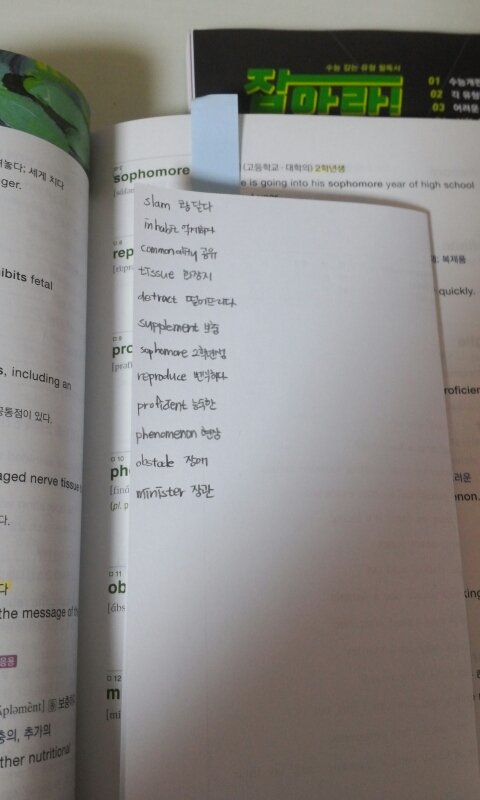 수능 감 잡는 유형 필독서
잡아라!
01 수능개편
02 각 유형
03 어려운
려놓다; 세게 치다
ger.
ibits fetal
s, including an
공통점이 있다.
aged nerve tissue
다.
다
the message of th
응용
보충하
충의, 추가의
ther nutritional
sophomore
(고등학교·대학의) 2학년생
e is going into his sophomore year of high school
rep
복제품
quickly.
pro
roficien
D 10
ph
(pl. p
non.
D 11
ob
king
D 12
m
slam 쾅 닫다
inhabit 억제하다
commonality 공유
tissue 화장지
detract 떨어뜨리다
supplement 보충
sophomore 2학년생
reproduce 번식하다
proficient 능숙한
phenomenon 현상
obstacle 장애
minister 장관